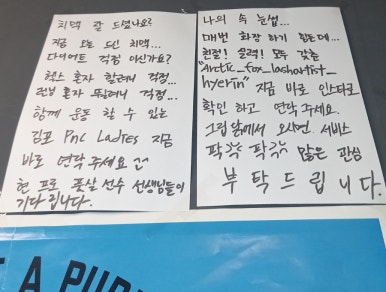 치맥 잘 드셨나요?
지금 오늘 드신 치맥...
다이어트 걱정 이신가요?
헬스 혼자 할려니 걱정...
런닝 혼자 뛸려니 걱정...
함께 운동 할 수 있는
김포 Pnc Ladies 지금
바로 연락 주세요
현 프로 풋살 선수 선생님들이
기다립니다.
나의 속 눈썹...
매번 화장 하기 힘든데...
친절! 실력! 모두 갖춘
"Arctic_for_lashartist_
hyerin" 지금 바로 인스타로
확인 하고 연락 주세요.
그림앞에서 오시면 서비스
팍팍 팍팍 많은 관심
부탁드립니다.
T A PUB